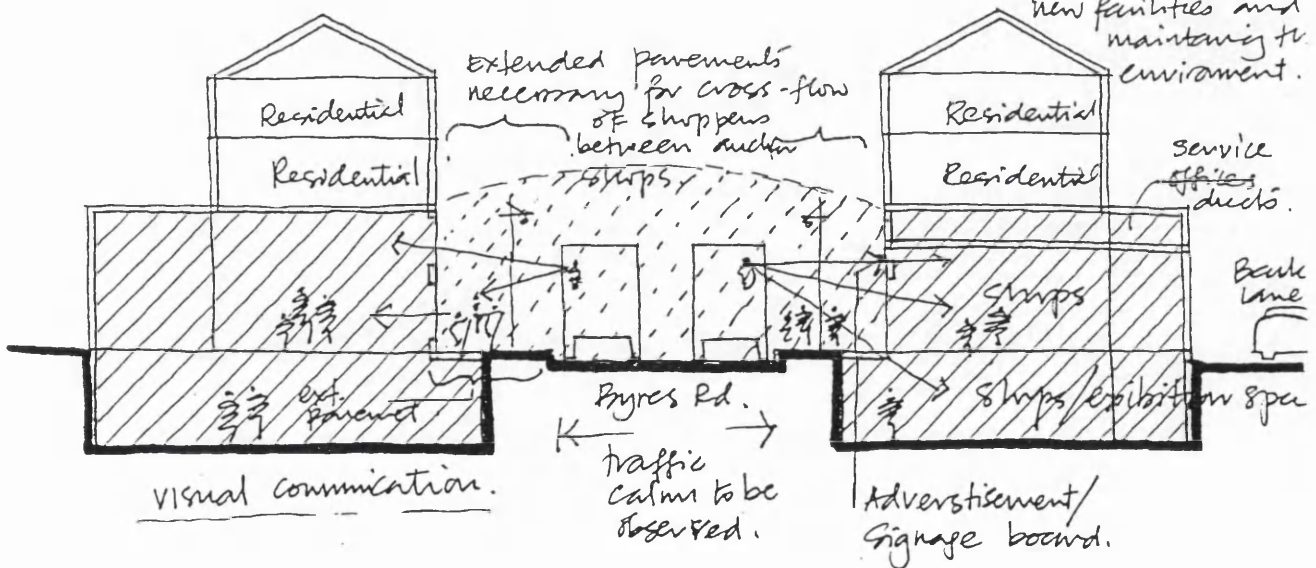 new facilities and
maintaing th.
enviroment.
Extended pavements
necessary for cross-flow
of shoppers
between anchor
shops
Residential
Residential
Residential
Residential
service
offices
ducts.
Bank
lane
shops
ext.
pavemet
Byres Rd.
shops/exibition spce
visual communication.
traffic
calm to be
observed.
Adverstisement/
Signage board.